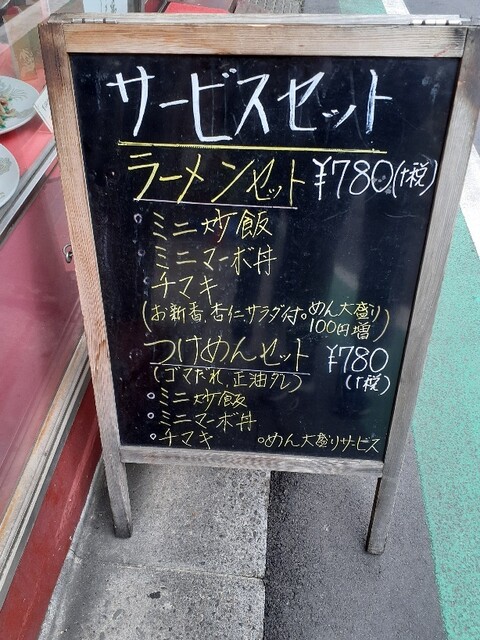 サービスセット
ラーメンセット ¥780(+税)
○ミニ炒飯
ミニマーボ丼
チマキ
(お新香、杏仁、サラダ付。めん大盛り
100円増)
つけめんセット ¥780
(ゴマだれ、正油タレ) (+税)
○ミニ炒飯
○ミニマーボ丼
○チマキ ○めん大盛りサービス